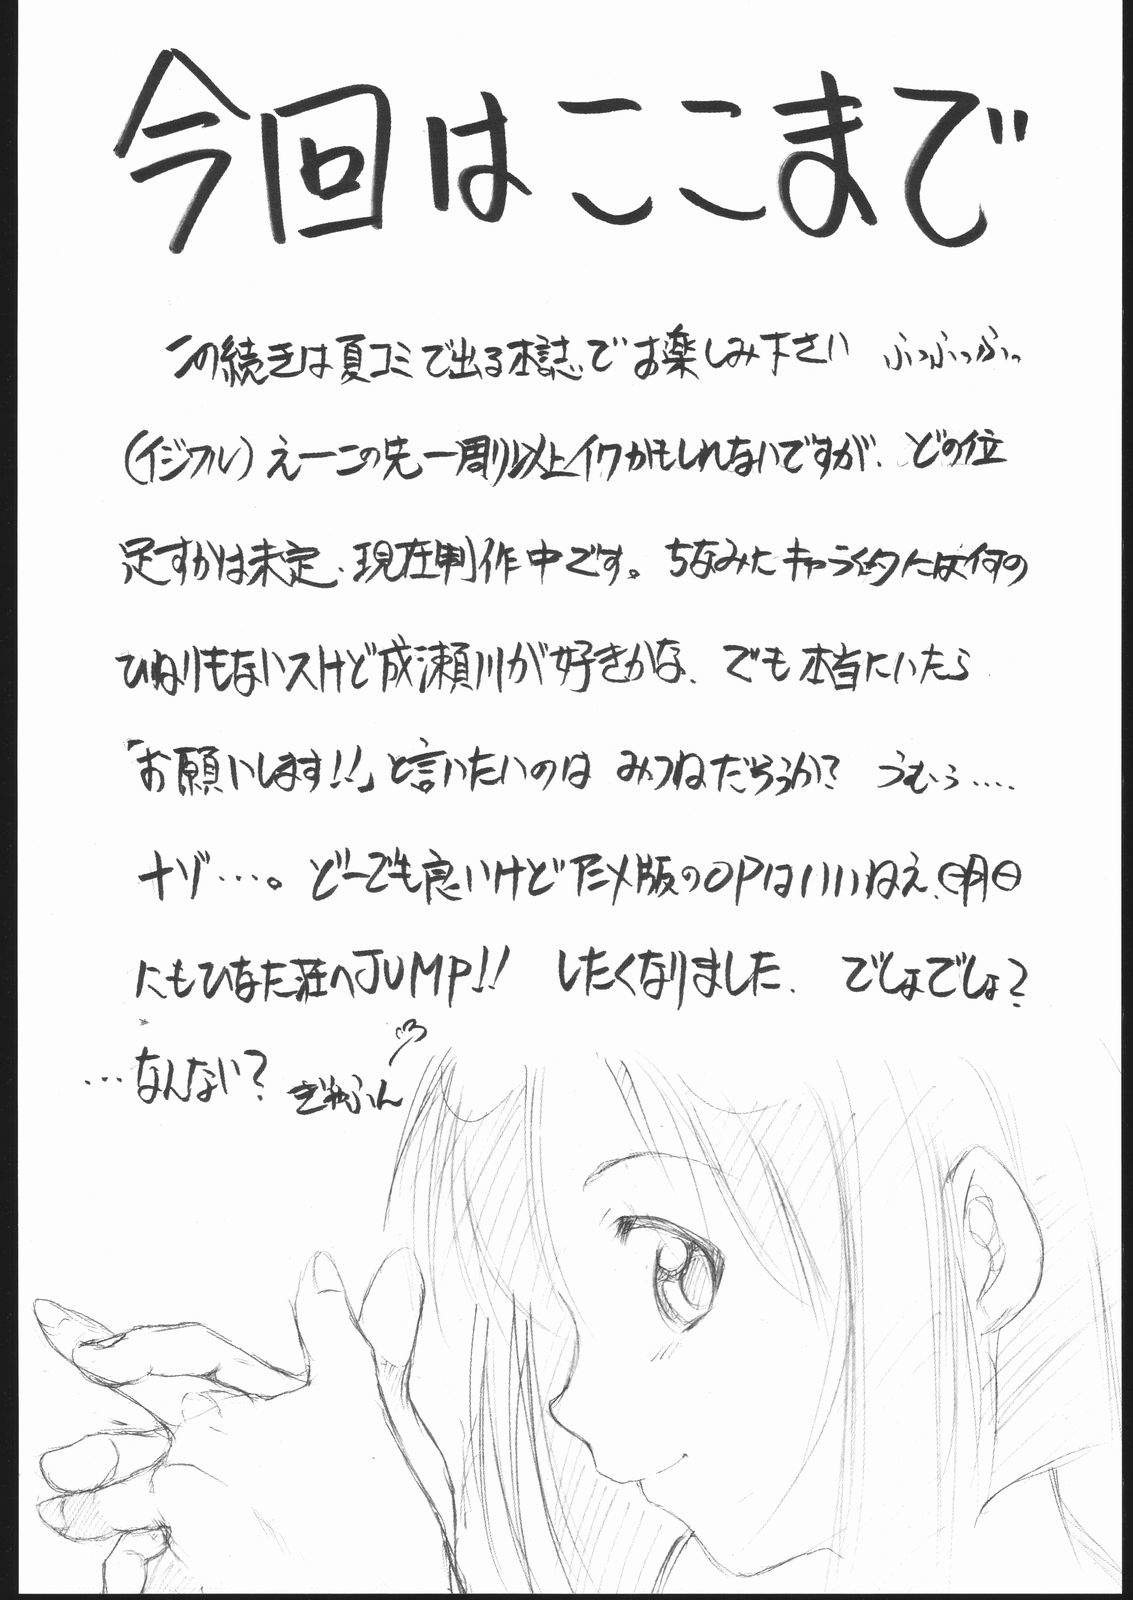 今回はここまで
この続きは夏コミで出る本誌でお楽しみ下さい ふっふっふっ
(イジワル)えーこの先一周り以上イクかもしれないですが、どの位
足すかは未定、現在制作中です。ちなみにキャラ的には何の
ひねりもないスけど成瀬川が好きかな、でも本当にいたら
「お願いします!!」と言いたいのは みつねだろうか? うむぅ....
ナゾ…。どーでも良いけどアニメ版のOPはいいねえ、明日
にもひなた荘へJUMP!! したくなりました、でしょでしょ?
…なんない? ぎゃふん